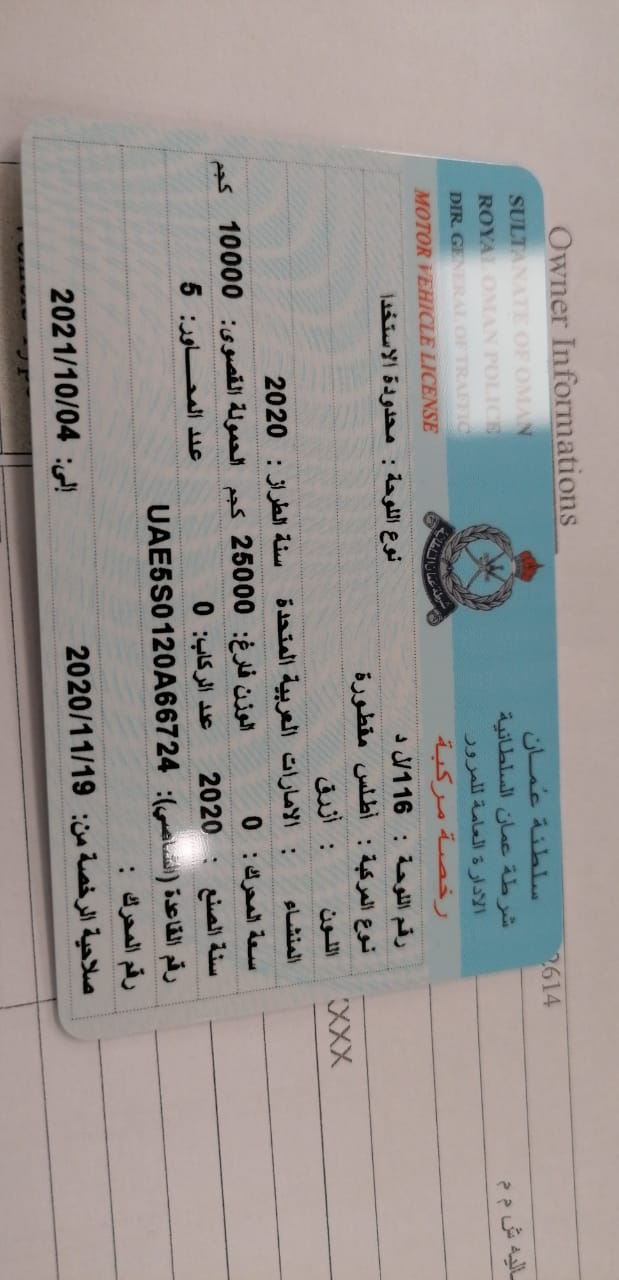 Owner Informations
2614
SULTANATE OF OMAN
ROYAL OMAN POLICE
DIR. GENERAL OF TRAFFIC
MOTOR VEHICLE LICENSE
سلطنة عُمان
شرطة عمان السلطانية
الادارة العامة للمرور
رخصة مركبة
شرطة عمان السلطانية
رقم اللوحة : 116/ل د نوع اللوحة : محدودة الاستخدا
نوع المركبة : أطلس مقطورة
اللـون : أزرق
المنشاء : الامارات العربية المتحدة سنة الطراز : 2020
سعة المحرك : 0 الوزن فارغ: 25000 كجم الحمولة القصوى: 10000 كجم
سنة الصنع : 2020 عدد الركاب: 0 عدد المحـــاور: 5
رقم القاعدة (الشاصي): UAE5S0120A66724
رقم المحرك :
صلاحية الرخصة من: 2020/11/19 إلى: 2021/10/04
XXX
ش م م